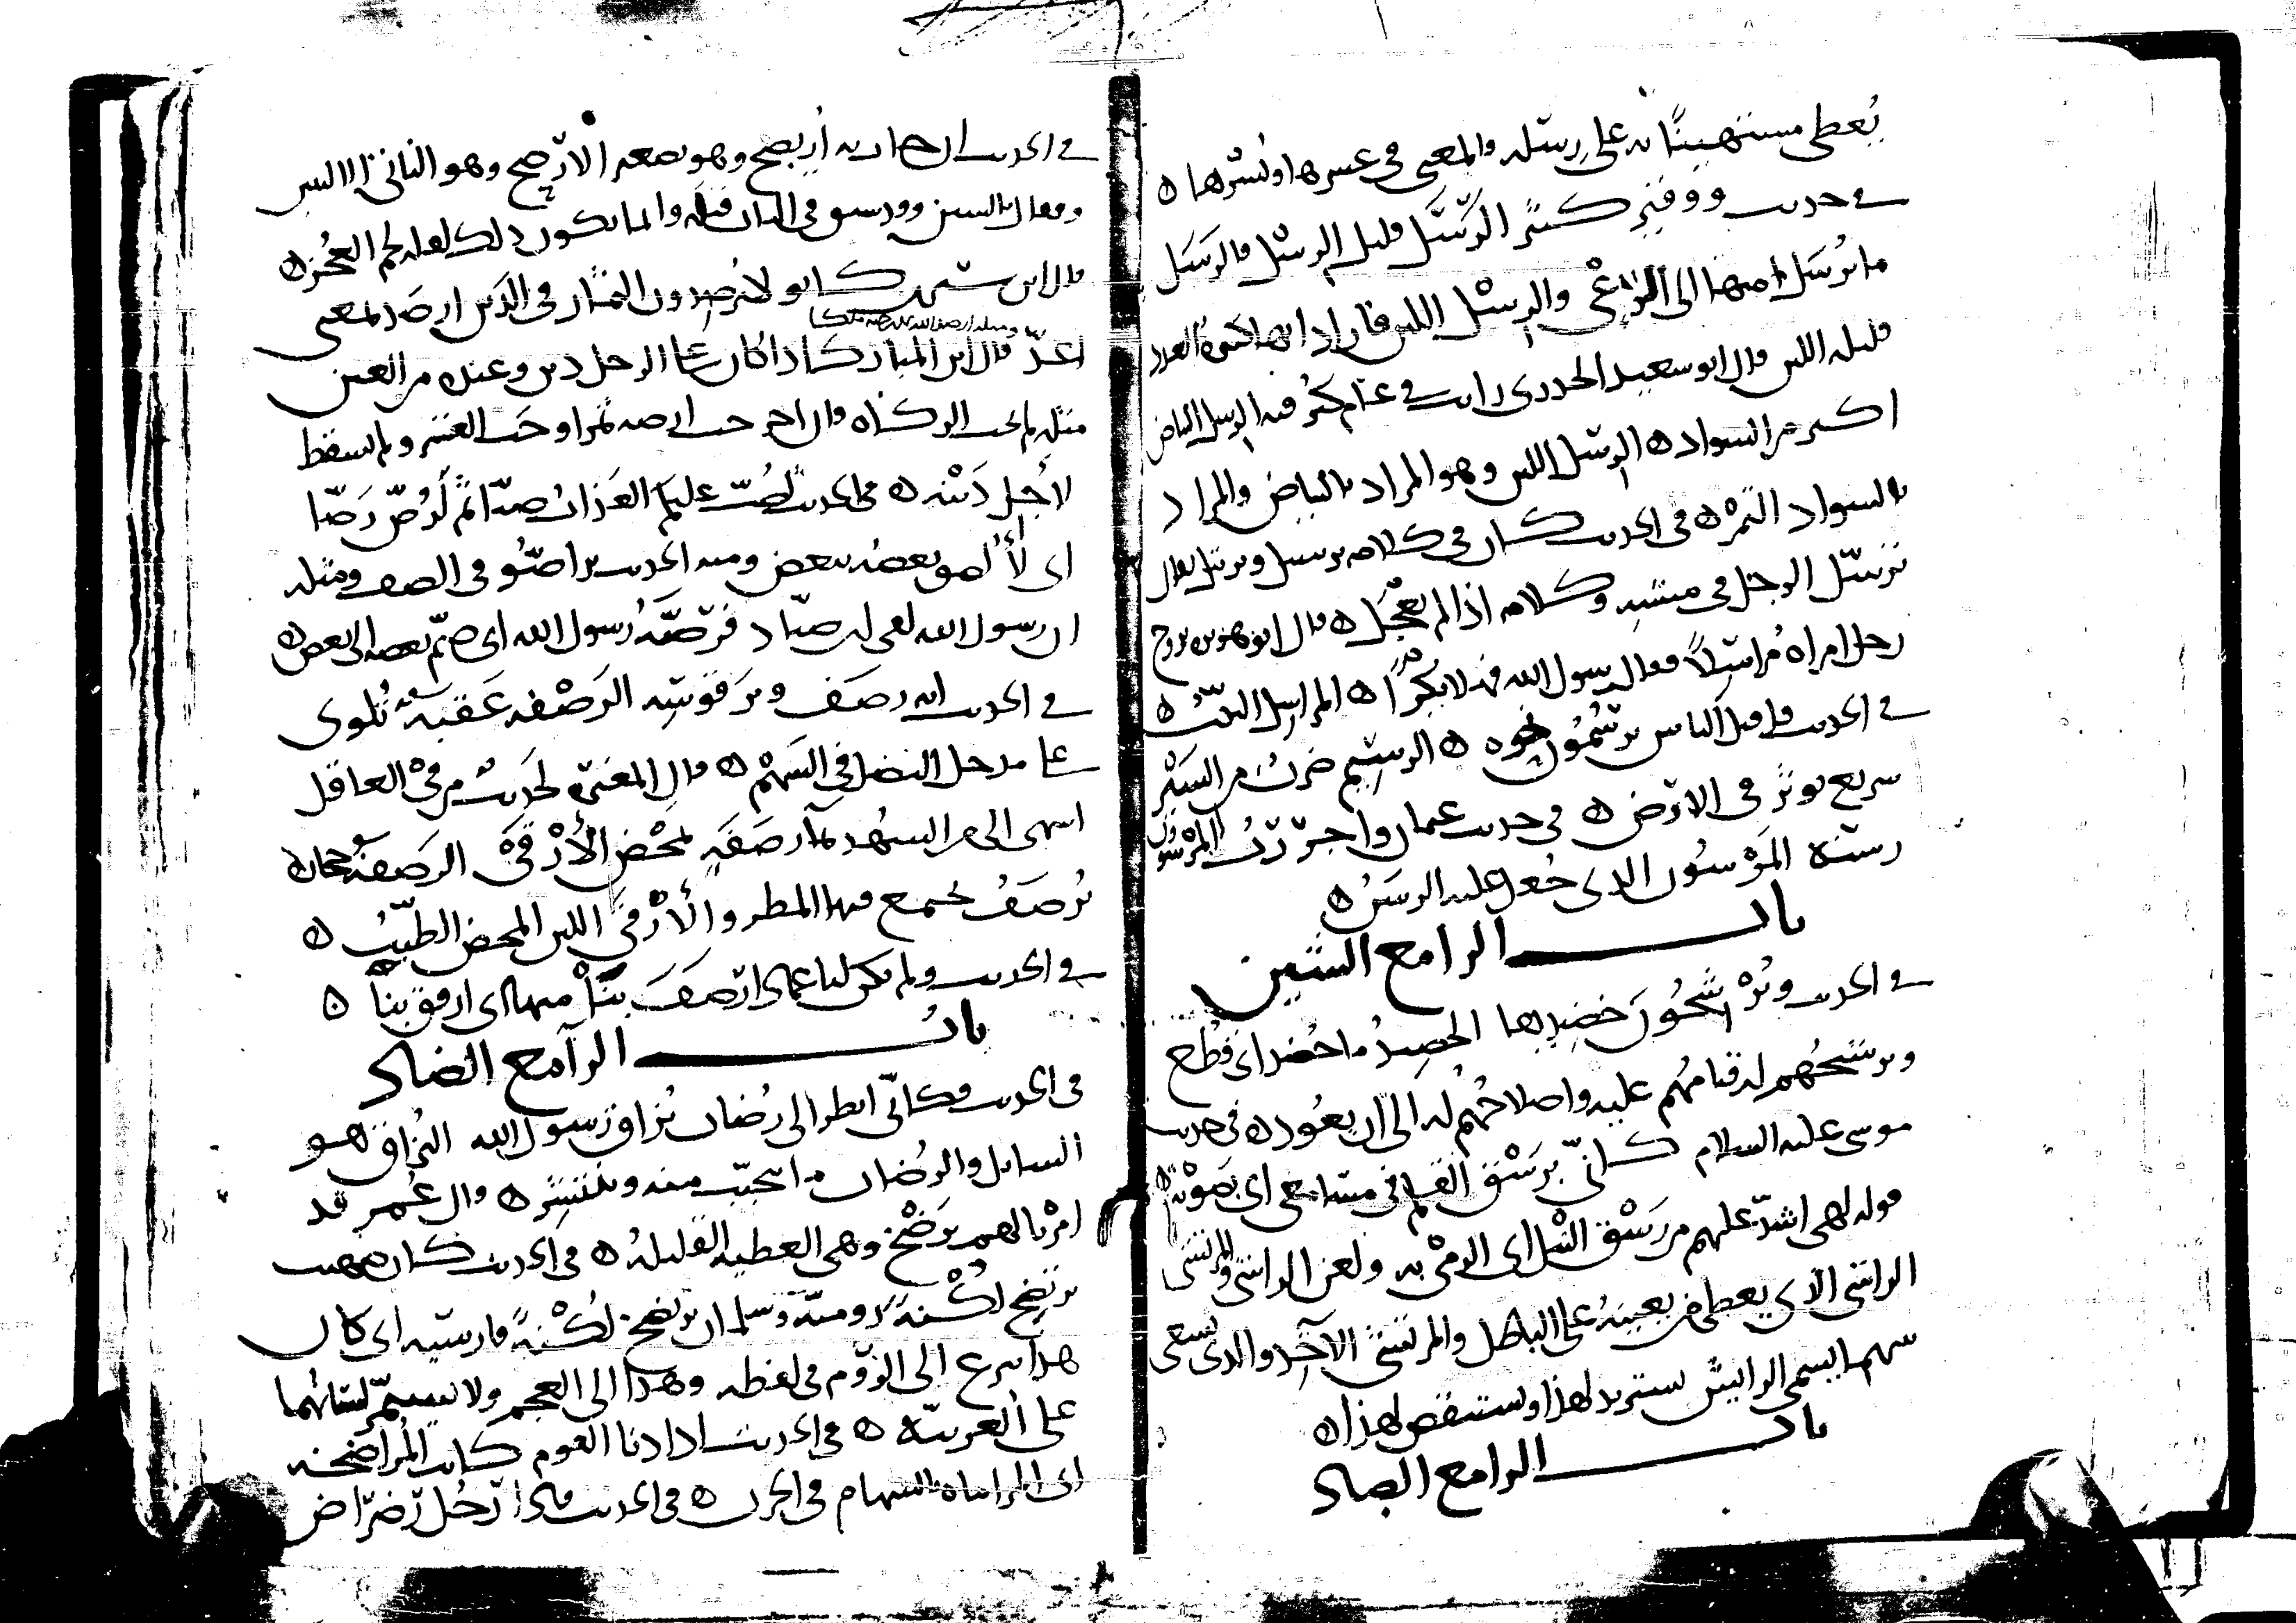 يُعطي مستهينًا به على رسله والمعنى في عسرها ويُسْرها ه
في حديث ووقير كثير الرَّسَل قليل الرِسْل فالرَسَل
ما يُرسَل منها الى الرَّعْي والرِسْل اللبن فاراد انها كثيرة العدد
قليلة اللبن قال ابو سعيد الخدري رايت في عام كثر فيه الرسل البياض
اكثر من السواد ه الرسْل اللبن وهو المراد بالبياض والمراد
بالسواد التمر ه في الحديث كان في كلامه ترسيل وترتيل يقال
ترسّل الرجل في مشيه وكلامه اذا لم يعجَل ه قال ابو هريرة تزوج
رجل امراة مُراسلًا فقال رسول الله فهلا بكرًا ه المراسل الثيّب ه
في الحديث فاقبل الناس يرسُمُون نحوه ه الرسيم ضربٌ من السَيْر
سريع يوثر في الارض ه في حديث عثمان واجررتُ المَرْسون
رسنه المَرْسُون الذي جُعل عليه الرسَن ه
باب الرا مع الشين
في الحديث ويُرشّحُون خضيدها الخضيدُ ما خُضد اي قُطع
وترشيحُهم له قيامُهم عليه واصلاحُهم له الى ان يعُود ه في حديث
موسى عليه السلام كاني برَشْق القلم في مسامعي اي بصَوْته ه
قوله لهي اشدّ عليهم من رَشْق النَبْل اي الرمْي به ولعن الراشي والمرتشي
الراشي الذي يعطي من يعينُه على الباطل والمرتشي الآخذ والذي يسعى
بينهما يسمى الرايش يستزيد لهذا ويستنقص لهذا ه
باب الرا مع الصاد
في الحديث ان جات به أُريصح وهو تصغير الارْصح وهو الناتئ الاليتين
ويقال بالسين وقد سبق في الباب قبله وانما يكون ذلك لقلة لحم العَجُز ه
قال ابن سيرين كانو لا يُرصدون الثمار في الدَين ارصَد بمعنى
اعدّ قال ابن المبارك اذا كان على الرجل دين وعنده من العين
مثله لم تجب الزكاة وان اخرجت ارضه ثمرا وجَب العشر ولم يسقط
لاجل دَيْنه ه في الحديث لصُبّ عليكم العَذابُ صبّا ثم لَرُصّ رَصّا
اي لأُلصق بعضُه ببعض ومنه الحديث تراصُّو في الصف ومثله
ان رسول الله لقي ابن صيّاد فرصَّه رسول الله اي ضمّ بعضه الى بعض ه
في الحديث انه رصَف وتَر قوسه الرَصْفه عَقَبَة تُلوى
على مدخل النصل في السَهْم ه قال المغيرة لحديث مِن في العاقل
اشهى الي من الشهد بمآ رَصَفَةٍ بمَحْض الأُرْفيّ الرَصفة حجارة
تُرصَفُ يجتمع فيها المطر والأُرْفيّ اللبن المحض الطيّبُ ه
في الحديث ولم يكن لنا عماد ارْصَفَ بنَا منها اي ارفق بنا ه
بابُ الرآ مع الضاد
في الحديث فكانّي انظر الى رُضاب بُزاق رسول الله البُزاق هو
السايل والرُضاب ما تحبّب منه وينتشر ه وقال عُمر قد
امرْنا لهم برَضْخٍ وهي العطيه القليلة ه في الحديث كان صهيب
يرتضخ لُكْنةً روميّة وسلمان يرتضخ لُكْنةً فارسيه اي كان
هذا ينزع الى الرُوم في لفظه وهذا الى العجم ولا يستمرّ لسانُهما
على العربيّة ه في الحديث اذا دنا القوم كانت المُراضخه
اي المراماة بالسهام في الحرب ه في الحديث فاذا رَجُل رَضرَاض